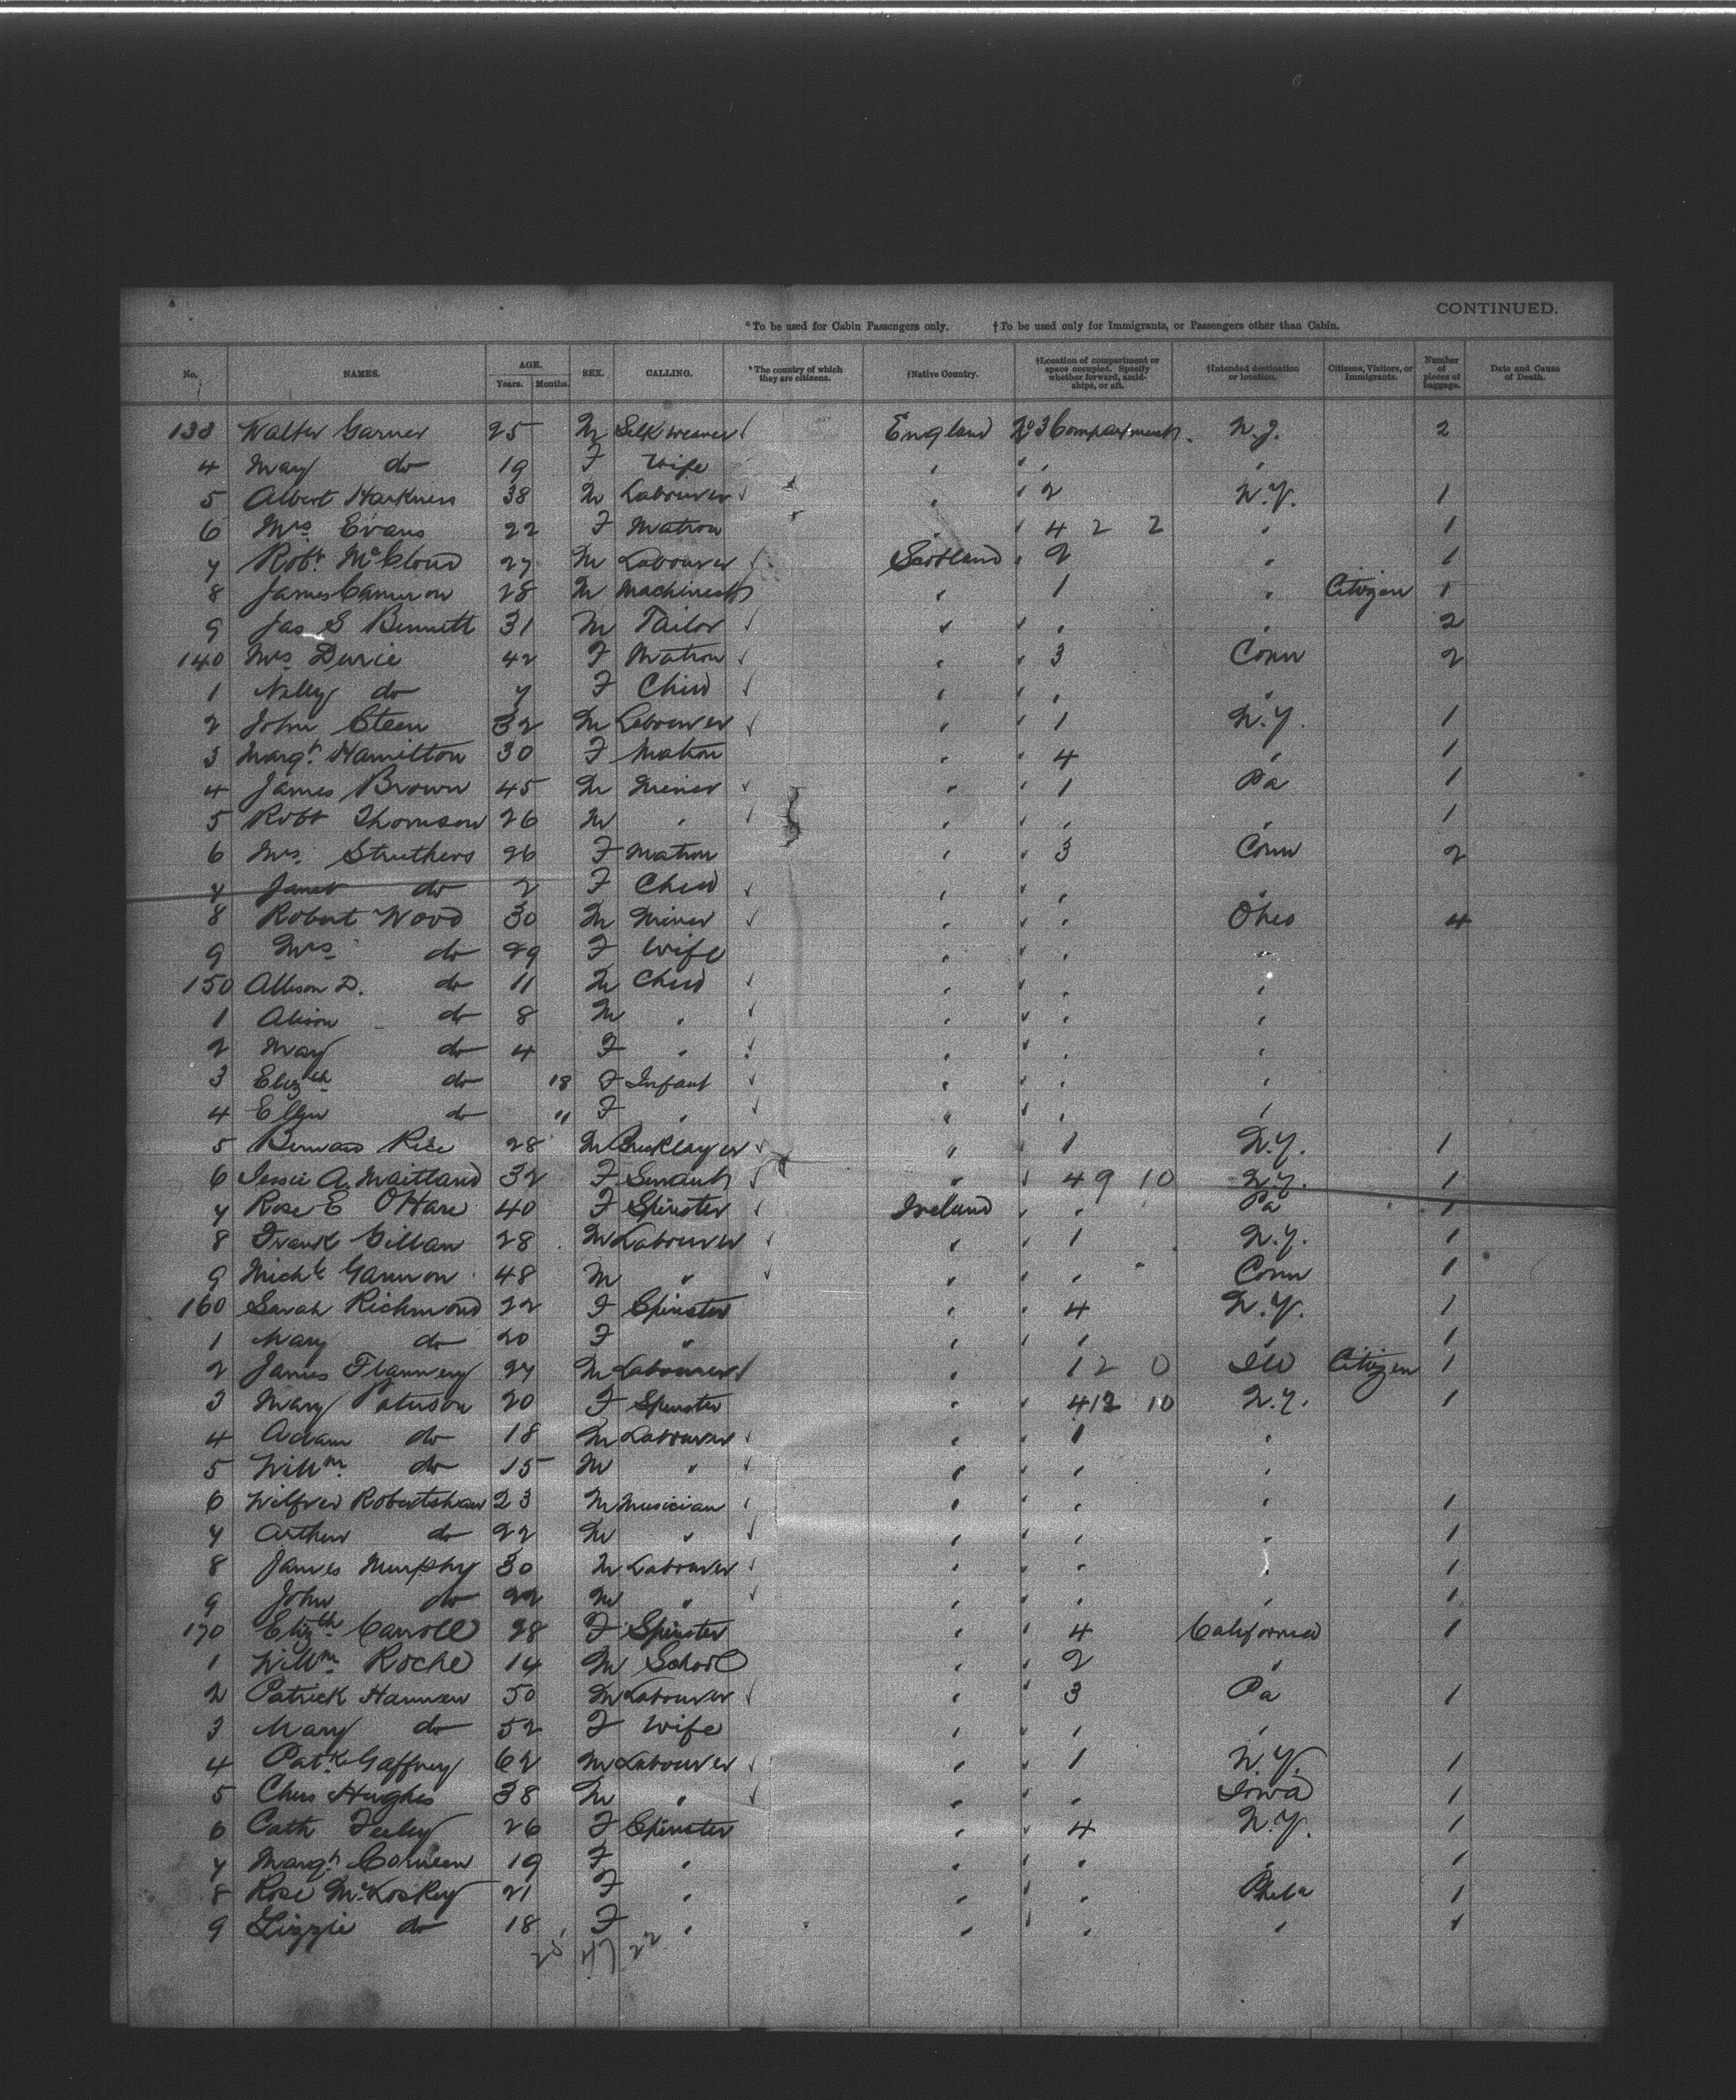 CONTINUED.
*To be used for Cabin Passengers only. †To be used only for Immigrants, or Passengers other than Cabin.
No. NAMES. AGE. Years. Months. SEX. CALLING. *The country of which they are citizens. †Native Country. †Location of compartment or space occupied. Specify whether forward, amidships, or aft. †Intended destination or location. Citizens, Visitors, or Immigrants. Number of pieces of baggage. Date and Cause of Death.
133 Walter Garner 25 M Silk weaver England No 3 Compartment. N.J. 2
4 May do 19 F Wife " " " "
5 Albert Harkness 38 M Labourer " " 2 N.Y. 1
6 Mrs Evans 22 F Matron " " 4 2 2 " 1
7 Robt. McCloud 27 M Labourer Scotland " 2 " 1
8 James Cameron 28 M Machinest " " 1 " Citizen 1
9 Jas S Bennett 31 M Tailor " " " " 2
140 Mrs Durie 42 F Matron " " 3 Conn 2
1 Nelly do 7 F Child " " " "
2 John Steen 32 M Labourer " " 1 N.Y. 1
3 Margt. Hamilton 30 F Matron " " 4 " 1
4 James Brown 45 M Miner " " 1 Pa 1
5 Robt Thomson 26 M " " " " " 1
6 Mrs. Struthers 26 F Matron " " 3 Conn 2
7 Janet do 2 F Child " " " "
8 Robert Wood 30 M Miner " " " Ohio 4
9 Mrs do 29 F Wife " " " "
150 Allison D. do 11 M Child " " " "
1 Alison do 8 M " " " " "
2 May do 4 F " " " " "
3 Elizth do 18 F Infant " " " "
4 Ellen do " F " " " " "
5 Bernard Rice 28 M Bricklayer " " 1 N.Y. 1
6 Jessie A. Maitland 32 F Servant " " 4 9 10 N.Y. 1
7 Rose E O'Hare 40 F Spinster Ireland " " Pa 1
8 Frank Gillan 28 M Labourer " " 1 N.Y. 1
9 Michl Gannon 48 M " " " " Conn 1
160 Sarah Richmond 22 F Spinster " " 4 N.Y. 1
1 Mary do 20 F " " " " " 1
2 James Flannery 24 M Labourer " " 1 2 0 Ill Citizen 1
3 Mary Paterson 20 F Spinster " " 4 12 10 N.Y. 1
4 Adam do 18 M Labourer " " 1 "
5 Willm. do 15 M " " " " "
6 Wilfred Robertshaw 23 M Musician " " " " 1
7 Arthur do 22 M " " " " " 1
8 James Murphy 30 M Labourer " " " " 1
9 John do 22 M " " " " " 1
170 Elizth Carroll 28 F Spinster " " 4 California 1
1 Willm Roche 14 M School " " 2 "
2 Patrick Hannen 50 M Labourer " " 3 Pa 1
3 Mary do 52 F Wife " " " "
4 Patk Gaffney 62 M Labourer " " 1 N.Y. 1
5 Chas Hughes 38 M " " " " Iowa 1
6 Cath Feeley 26 F Spinster " " 4 N.Y. 1
7 Margt 19 F " " " " " 1
8 Rose McLoskey 21 F " " " " Phila 1
9 Lizzie do 18 F " " " " " 1
25 47 22